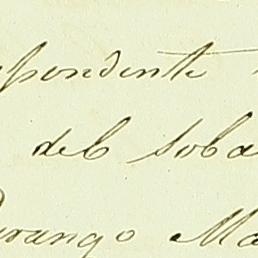 spondente
del Soba
Durango Ma